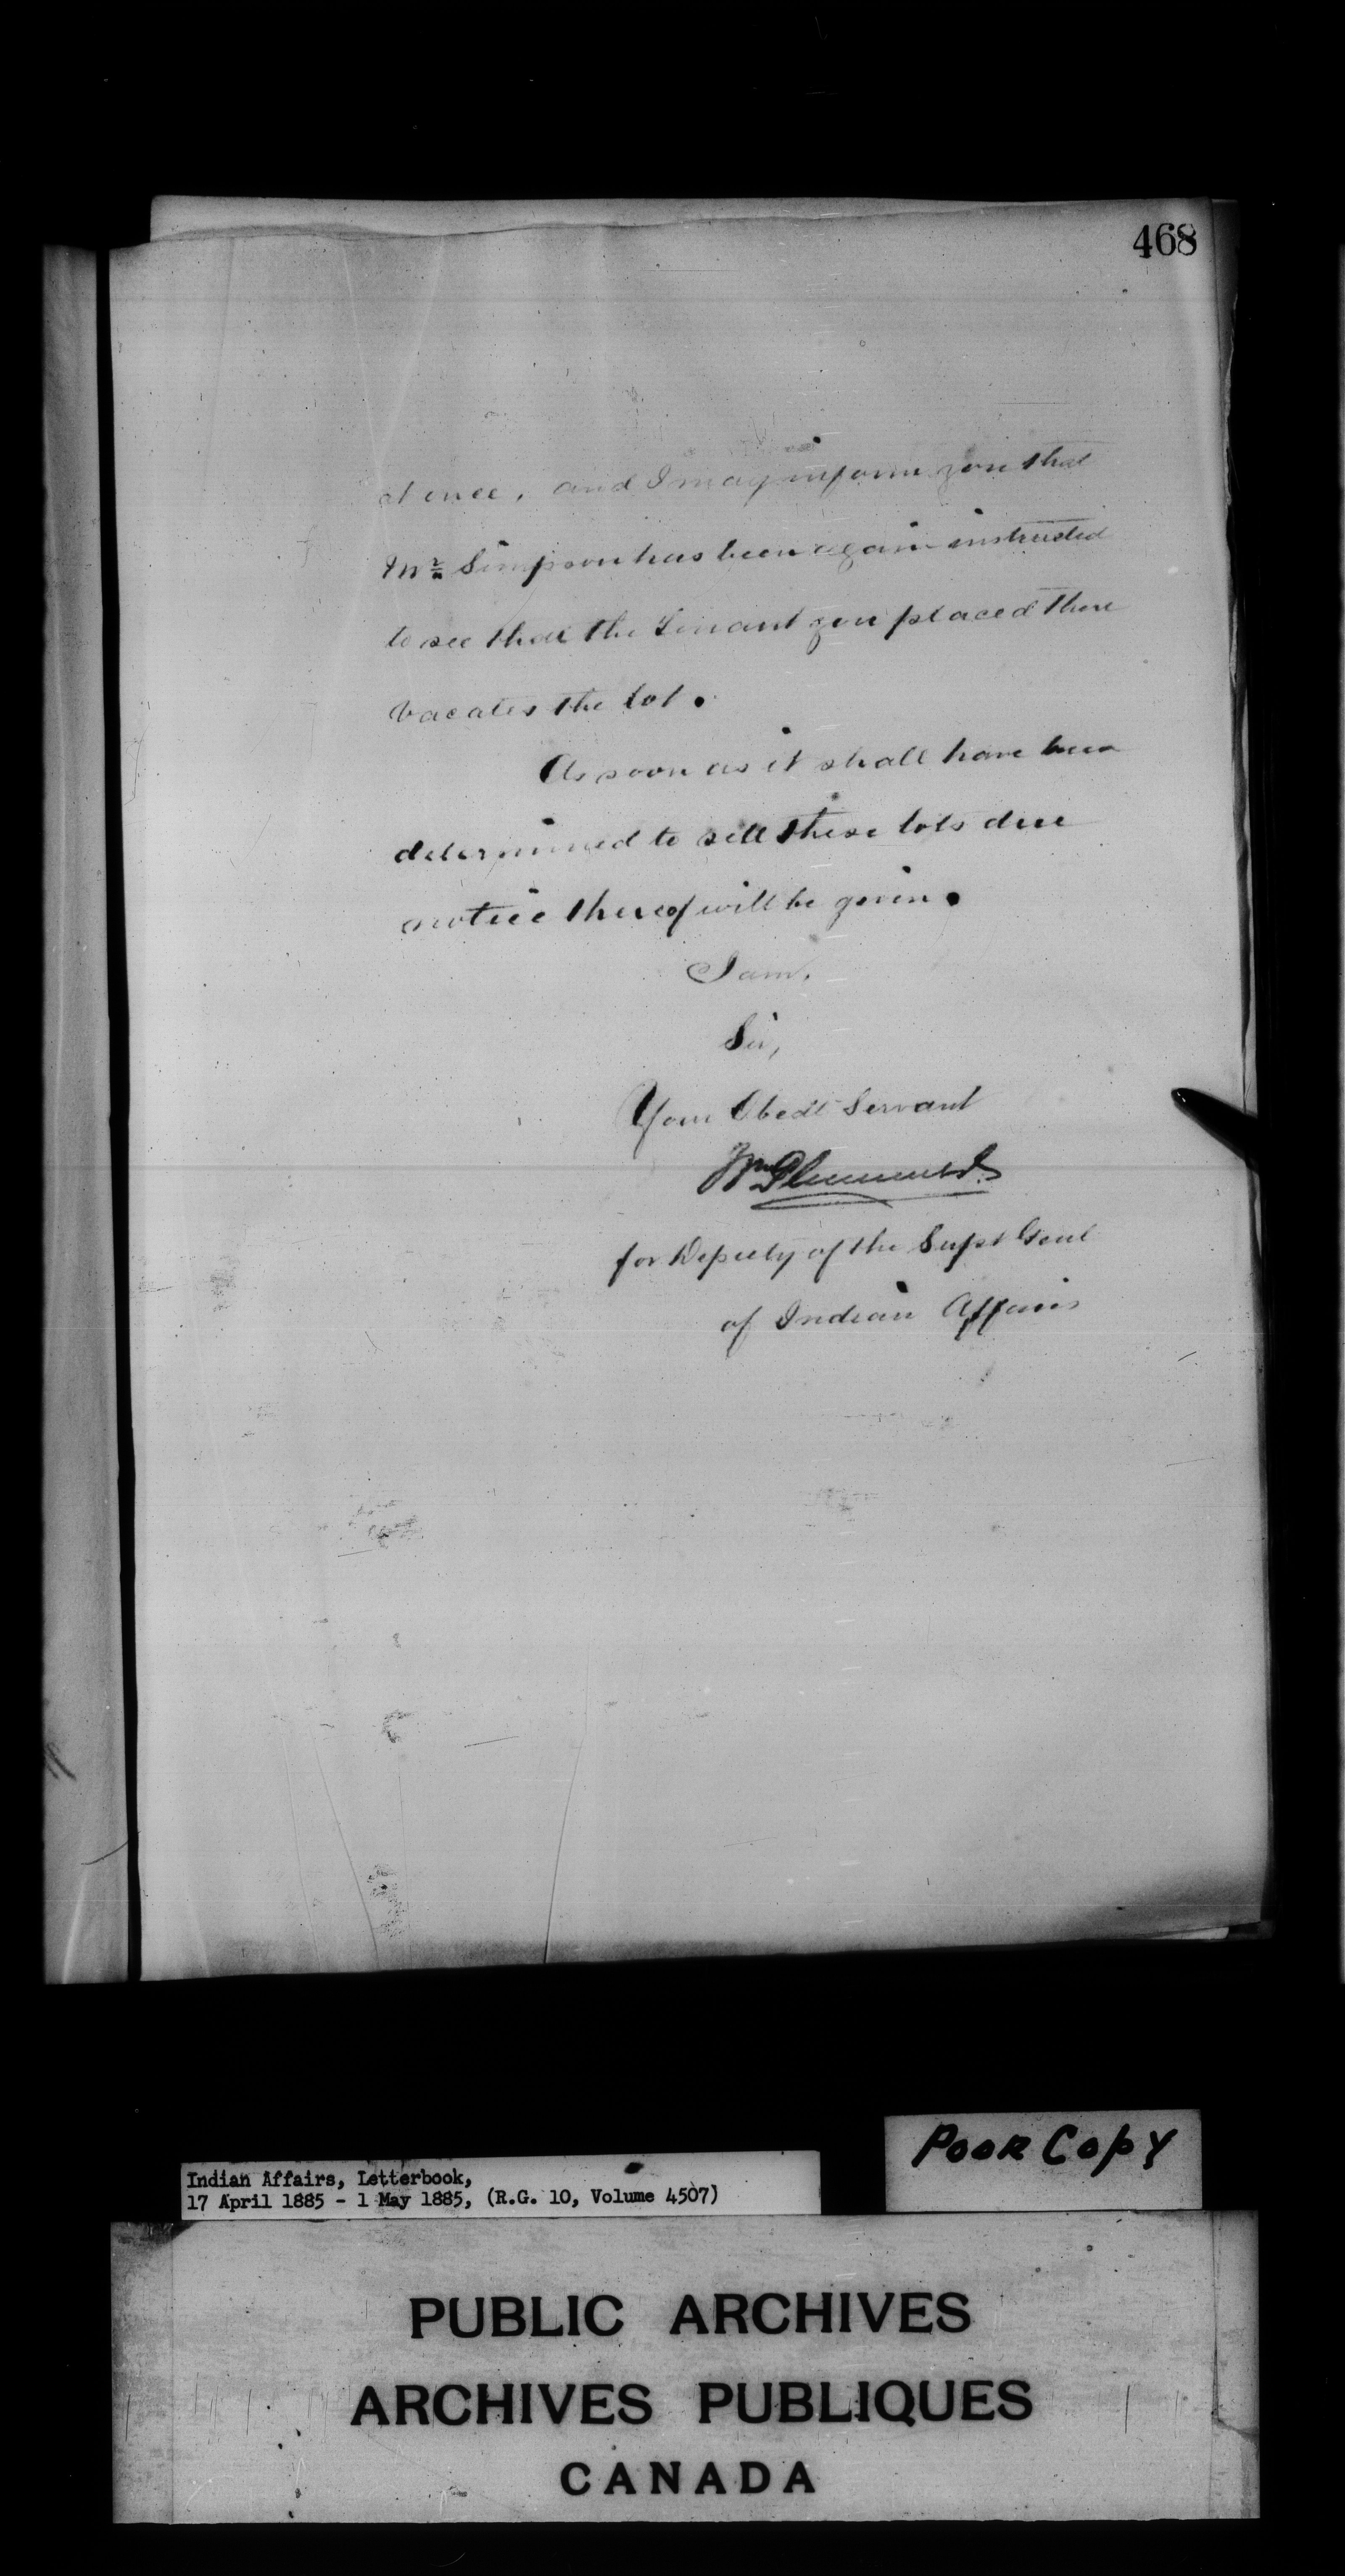 468
at once, and I may inform you that
Mr Simpson has been again instructed
to see that the Tenant you placed there
vacates the lot.
As soon as it shall have been
determined to sell these lots due
notice thereof will be given.
I am,
Sir,
Your Obedt Servant
Wm Plummer
for Deputy of the Supt Genl
of Indian Affairs
Poor Copy
Indian Affairs, Letterbook,
17 April 1885 - 1 May 1885, (R.G. 10, Volume 4507)
PUBLIC ARCHIVES
ARCHIVES PUBLIQUES
CANADA